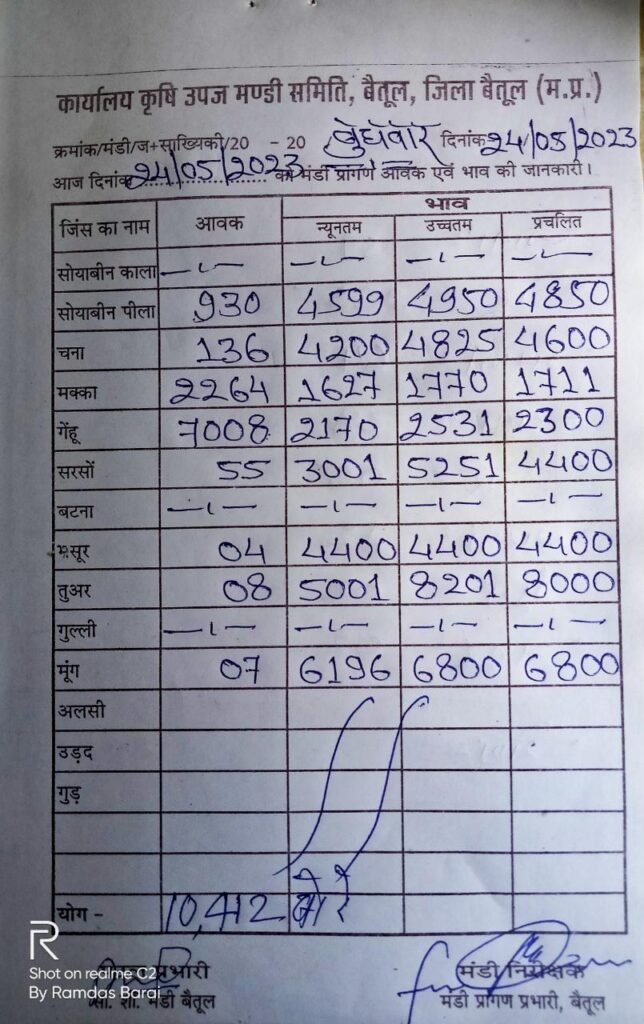 कार्यालय कृषि उपज मण्डी समिति, बैतूल, जिला बैतूल (म.प्र.)
क्रमांक/मंडी/ज+साख्यिकी/20 - 20 बुधवार दिनांक 24/05/2023
आज दिनांक 24/05/2023 को मंडी प्रांगण आवक एवं भाव की जानकारी।
जिंस का नाम आवक भाव
न्यूनतम उच्चतम प्रचलित
सोयाबीन काला —ı— —ı— —ı— —ı—
सोयाबीन पीला 930 4599 4950 4850
चना 136 4200 4825 4600
मक्का 2264 1627 1770 1711
गेंहू 7008 2170 2531 2300
सरसों 55 3001 5251 4400
बटना —ı— —ı— —ı— —ı—
मसूर 04 4400 4400 4400
तुअर 08 5001 8201 8000
गुल्ली —ı— —ı— —ı— —ı—
मूंग 07 6196 6800 6800
अलसी
उड़द
गुड़
योग - 10,412 बोरे
प्रभारी मंडी निरीक्षक
सा. शा. मंडी बैतूल मंडी प्रांगण प्रभारी, बैतूल
R
Shot on realme C2
By Ramdas Baraj